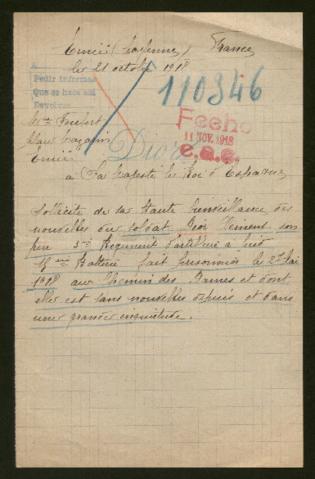 Ernée (Mayenne) France
le 21 octobre 1918
Pedir informes
Que se hace así
Devolver
110346
Fecho
11 NOV. 1918
C.a.e.
Mme Foubert
Ernée
Dior
à Sa Majesté le Roi d'Espagne
Sollicite de sa Haute bienveillance des
nouvelles du soldat Dior Clément son
père 5me Régiment d'artillerie à pied
18me Batterie fait prisonnier le 27 Mai
1918 au Chemin des Dames et dont
elle est sans nouvelles depuis et dans
une grande inquiétude.